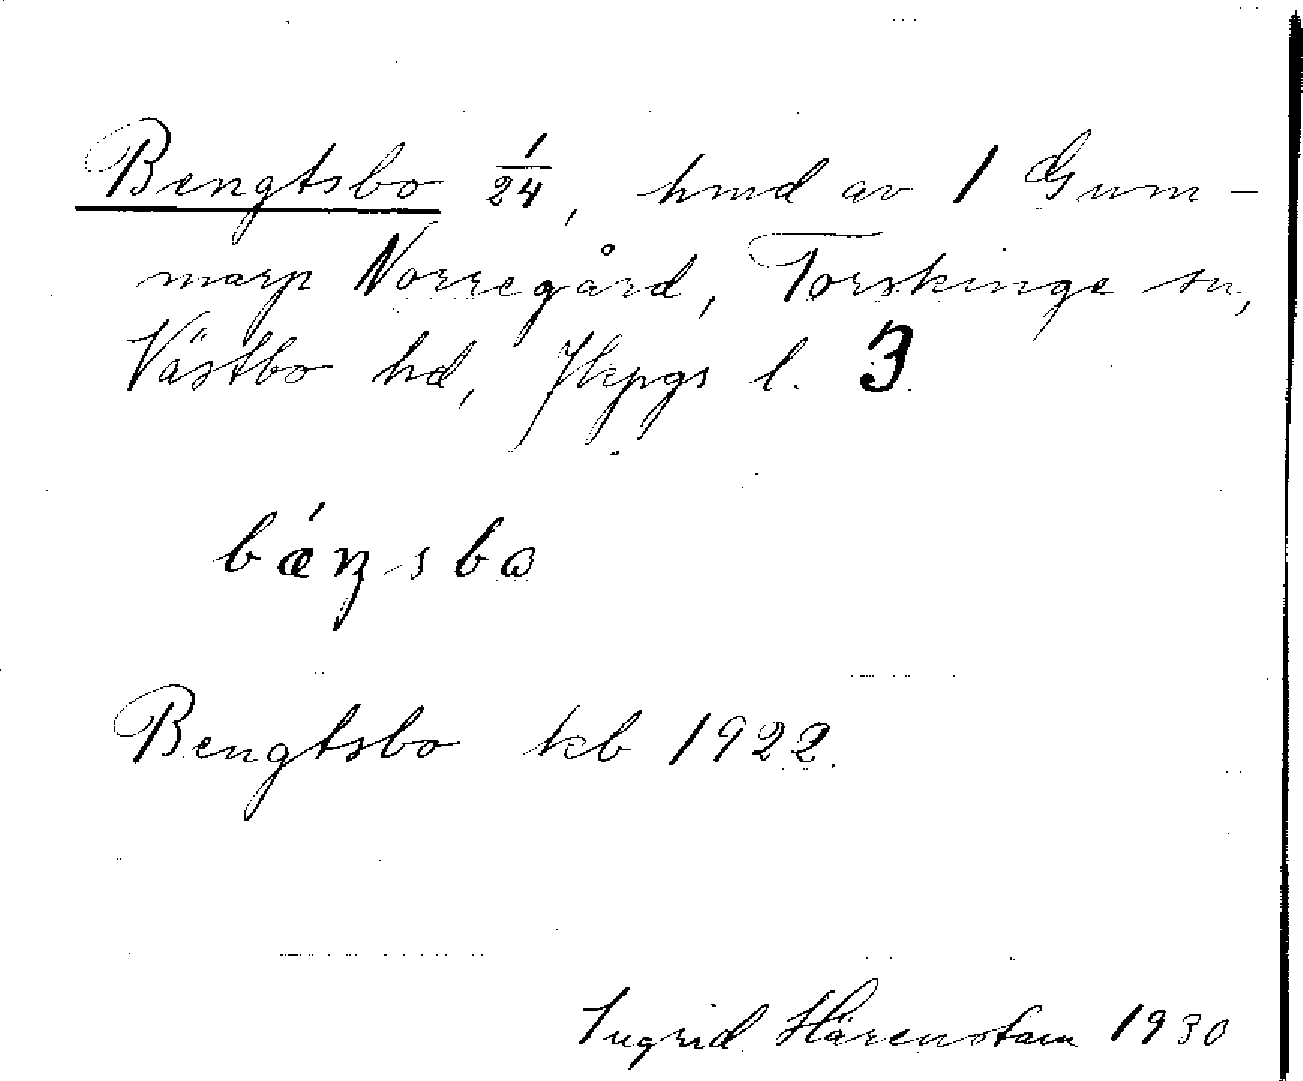 Bengtsbo 1/24, hmd av 1 Gum-
marp Norregård, Torskinge sn,
Västbo hd, Jkpgs l. 3
bǽŋsbω
Bengtsbo kb 1922.
Ingrid Härenstam 1930